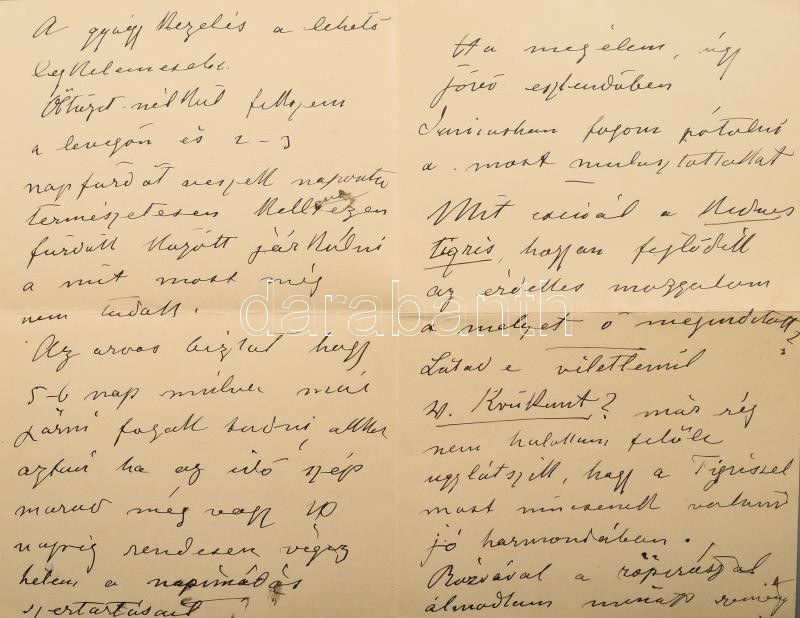 A gyógykezelés a lehető
legkelemesebb.
Öltözet nélkül fekszem
a levegőn és 2-3
napfürdőt veszek naponta
természetesen kell ezen
fürdők között járkálni
a mit most még
nem tudok.
Az orvos biztat hogy
5-6 nap mulva már
járni fogok tudni, akkor
aztán ha az idő szép
marad még vagy 10
napig rendesen végez
hetem a napimádás
szertartásait
Ha megélem, úgy
jövő esztendőben
Juniusban fogom pótolni
a most mulasztottakat
Mit csinál a kedves
tigris, hogyan fejlődik
az érdekes mozgalom
a melyet ő megindított?
Látod e véletlenül
Krúkunt? már rég
nem hallottam felőle
ugylátszik, hogy a Tigrissel
most nincsenek valami
jó harmoniában.
Rózsával a röpirással
álmodtam minap
darabanth